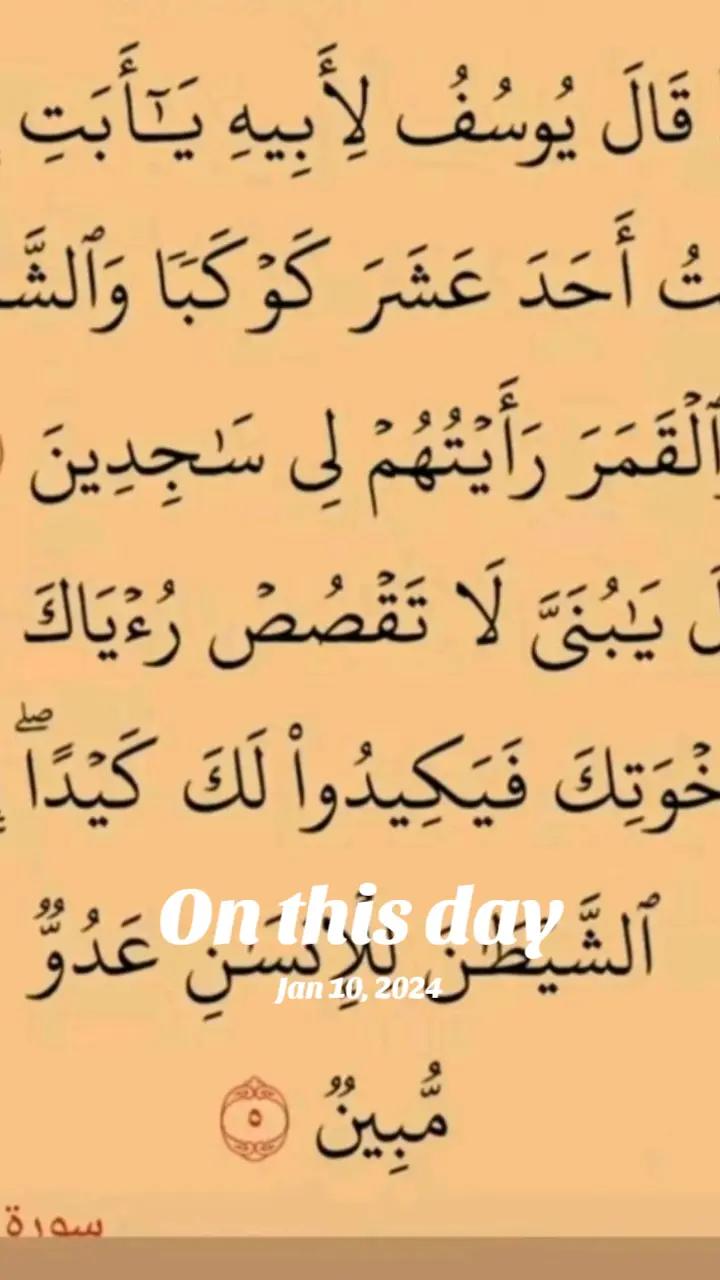 قَالَ يُوسُفُ لِأَبِيهِ يَـٰٓأَبَتِ
تُ أَحَدَ عَشَرَ كَوۡكَبٗا وَٱلشَّ
ٱلۡقَمَرَ رَأَيۡتُهُمۡ لِي سَـٰجِدِينَ
لَ يَـٰبُنَيَّ لَا تَقۡصُصۡ رُءۡيَاكَ
خۡوَتِكَ فَيَكِيدُواْ لَكَ كَيۡدًاۖ
ٱلشَّيۡطَـٰنَ لِلۡإِنسَـٰنِ عَدُوّٞ
On this day
Jan 10, 2024
مُّبِينٞ ٥
سورة